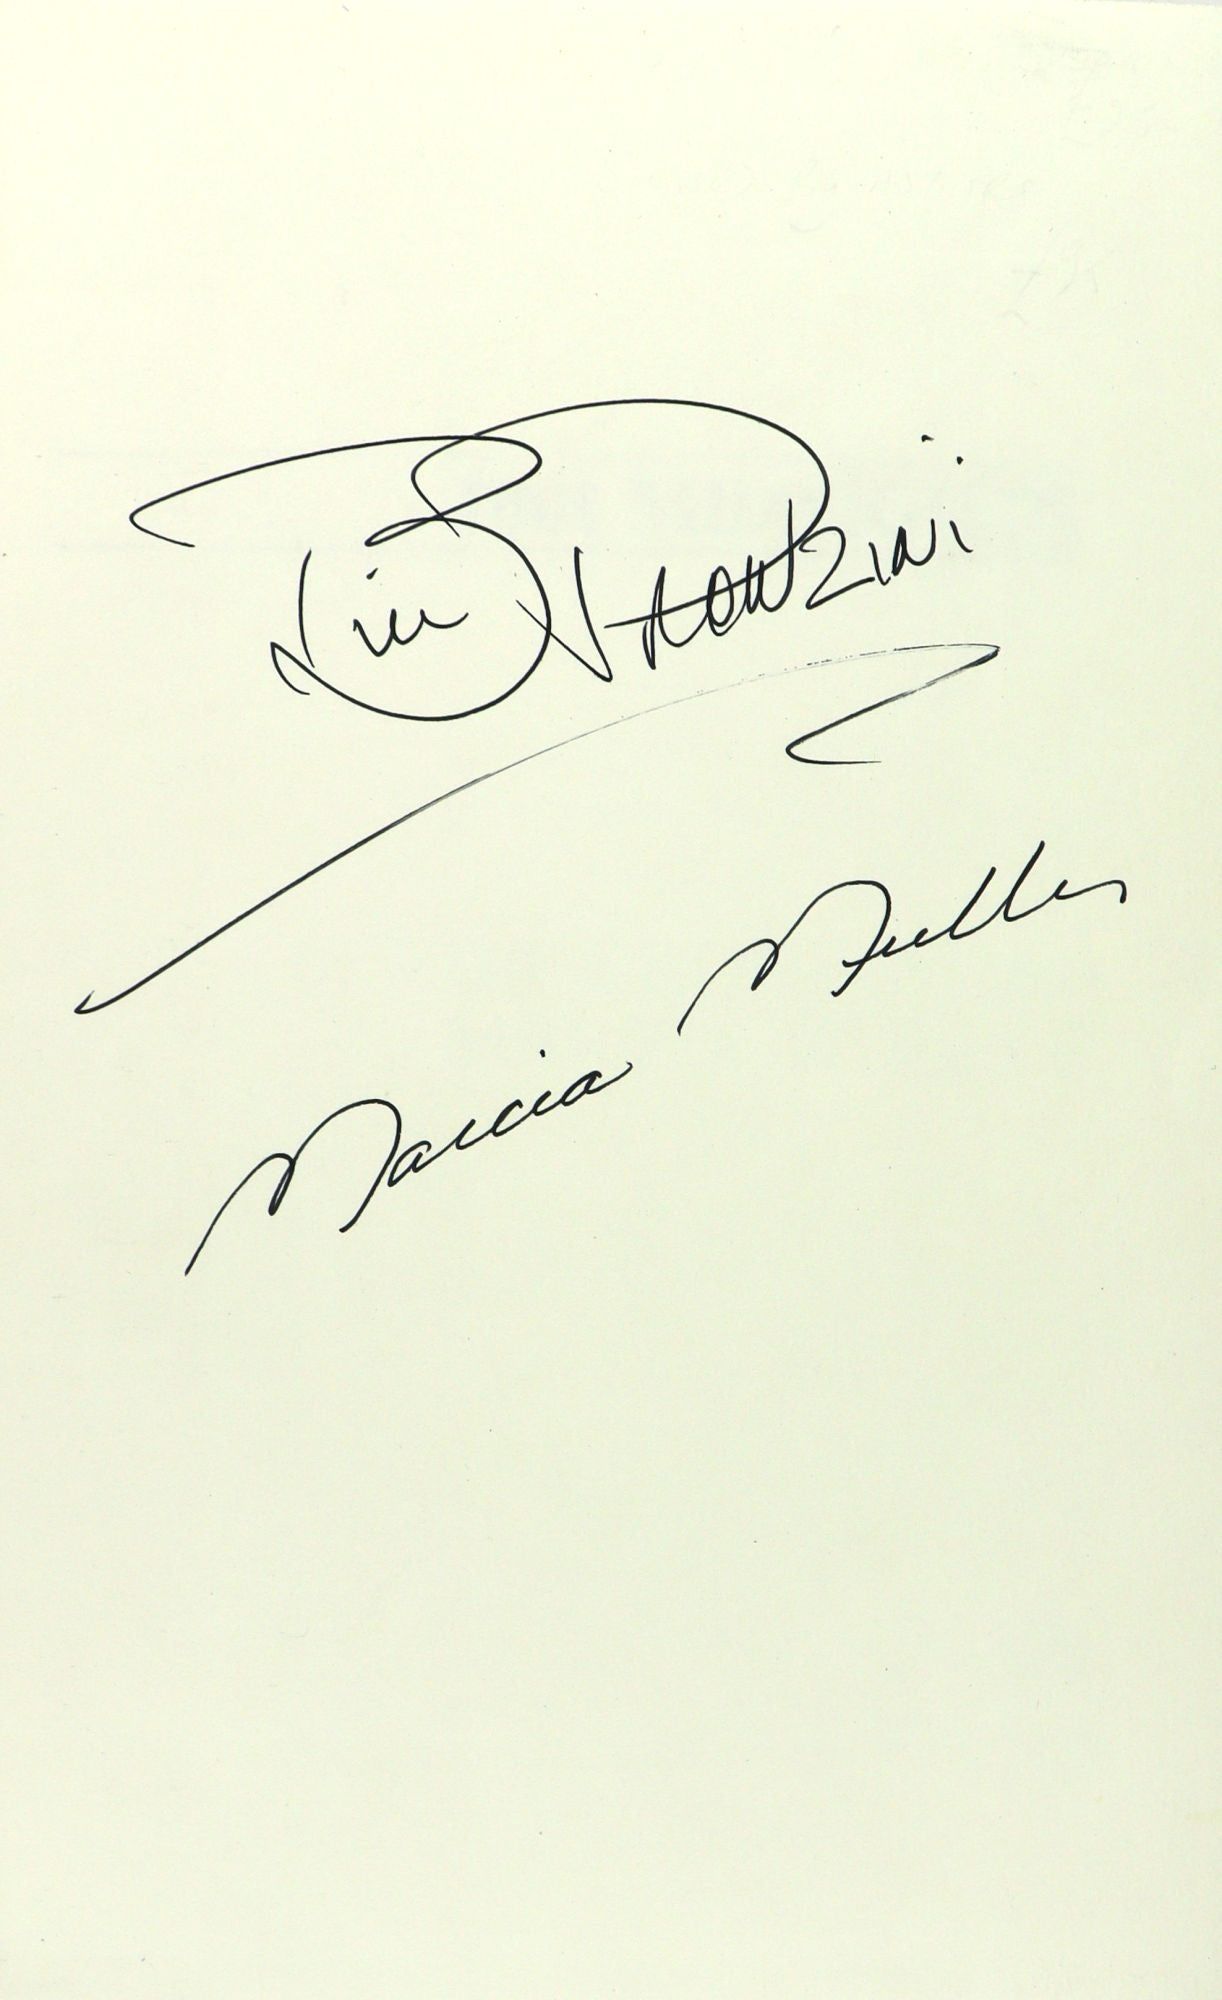 Bill Pronzini
Marcia Muller